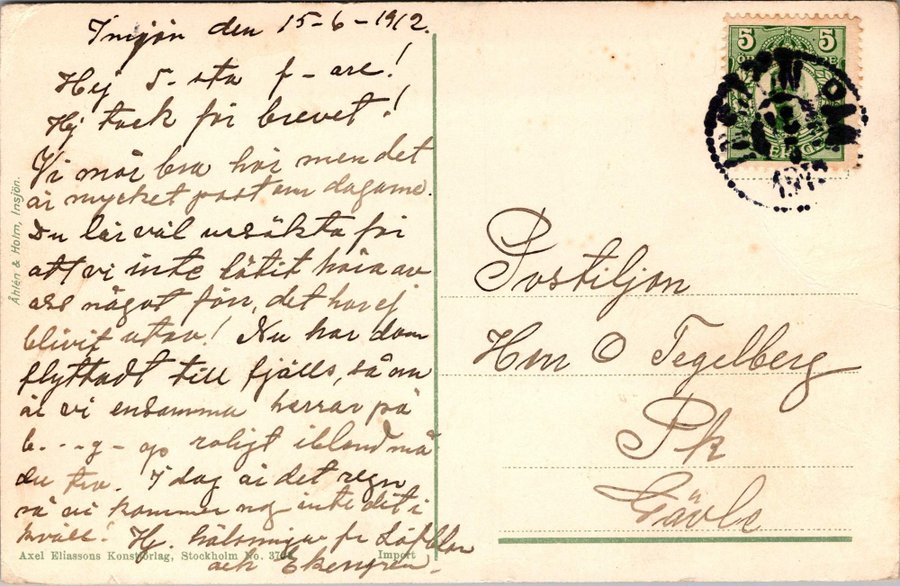 Insjön den 15-6-1912.
Hej 5-ata f-are!
Hj tack för brevet!
Vi mår bra här men det
är mycket post om dagarne.
Du lär väl ursäkta för
att vi inte låtit höra av
oss något förr, det har ej
blivit utav! Nu har dom
flyttadt till fjälls, så nu
är vi ensamma herrar på
b...g-go roligt ibland må
du tro. I dag är det regn
så vi kommer nog inte dit i
kväll! Hj. hälsningar fr
och Ekengren.
Åhlén & Holm, Insjön.
Axel Eliassons Konstförlag, Stockholm No. Import
5 5
Postiljon
Herr O Tegelberg
Pk
Gävle